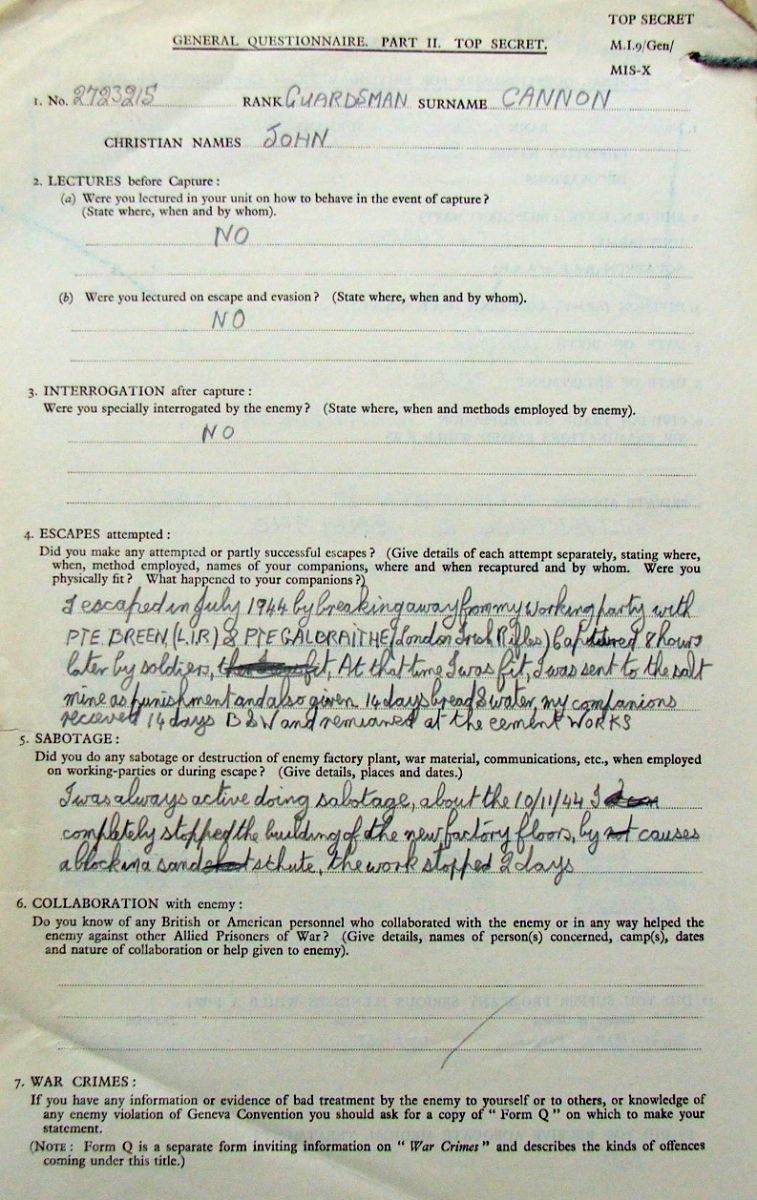 TOP SECRET
GENERAL QUESTIONNAIRE. PART II. TOP SECRET.
M.I.9/Gen/
MIS-X
1. No. 2723215 RANK GUARDSMAN SURNAME CANNON
CHRISTIAN NAMES JOHN
2. LECTURES before Capture:
(a) Were you lectured in your unit on how to behave in the event of capture?
(State where, when and by whom).
NO
(b) Were you lectured on escape and evasion? (State where, when and by whom).
NO
3. INTERROGATION after capture:
Were you specially interrogated by the enemy? (State where, when and methods employed by enemy).
NO
4. ESCAPES attempted:
Did you make any attempted or partly successful escapes? (Give details of each attempt separately, stating where,
when, method employed, names of your companions, where and when recaptured and by whom. Were you
physically fit? What happened to your companions?)
I escaped in July 1944 by breaking away from my working party with
PTE. BREEN, (L.I.R) & PTE GALBRAITHE (London Irish Rifles) Captured 8 hours
later by soldiers, fit, At that time I was fit, I was sent to the salt
mine as punishment and also given 14 days bread & water, my companions
receved 14 days B & W and remianed at the cement WORKS
5. SABOTAGE:
Did you do any sabotage or destruction of enemy factory plant, war material, communications, etc., when employed
on working-parties or during escape? (Give details, places and dates.)
I was always active doing sabotage, about the 10/11/44 I
completely stopped the building of the new factory floors, by causes
a block in a sand schute, the work stopped 2 days
6. COLLABORATION with enemy:
Do you know of any British or American personnel who collaborated with the enemy or in any way helped the
enemy against other Allied Prisoners of War? (Give details, names of person(s) concerned, camp(s), dates
and nature of collaboration or help given to enemy).
7. WAR CRIMES:
If you have any information or evidence of bad treatment by the enemy to yourself or to others, or knowledge of
any enemy violation of Geneva Convention you should ask for a copy of "Form Q" on which to make your
statement.
(NOTE: Form Q is a separate form inviting information on "War Crimes" and describes the kinds of offences
coming under this title.)